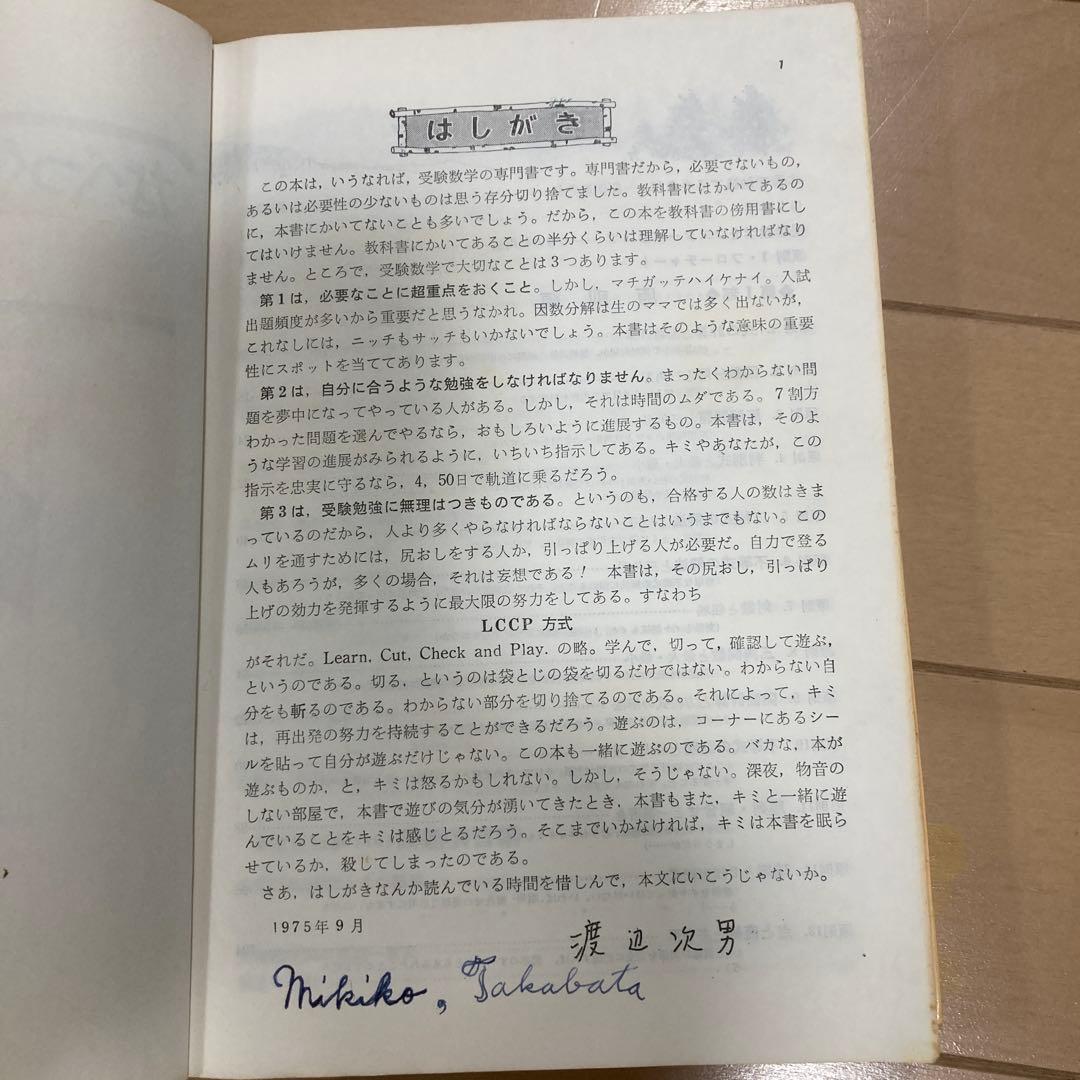 1
はしがき
この本は，いうなれば，受験数学の専門書です。専門書だから，必要でないもの，
あるいは必要性の少ないものは思う存分切り捨てました。教科書にはかいてあるの
に，本書にかいてないことも多いでしょう。だから，この本を教科書の傍用書にし
てはいけません。教科書にかいてあることの半分くらいは理解していなければなり
ません。ところで，受験数学で大切なことは３つあります。
第１は，必要なことに超重点をおくこと。しかし，マチガッテハイケナイ。入試
出題頻度が多いから重要だと思うなかれ。因数分解は生のママでは多く出ないが，
これなしには，ニッチもサッチもいかないでしょう。本書はそのような意味の重要
性にスポットを当ててあります。
第２は，自分に合うような勉強をしなければなりません。まったくわからない問
題を夢中になってやっている人がある。しかし，それは時間のムダである。７割方
わかった問題を選んでやるなら，おもしろいように進展するもの。本書は，そのよ
うな学習の進展がみられるように，いちいち指示してある。キミやあなたが，この
指示を忠実に守るなら，4，50日で軌道に乗るだろう。
第３は，受験勉強に無理はつきものである。というのも，合格する人の数はきま
っているのだから，人より多くやらなければならないことはいうまでもない。この
ムリを通すためには，尻おしをする人か，引っぱり上げる人が必要だ。自力で登る
人もあろうが，多くの場合，それは妄想である！　本書は，その尻おし，引っぱり
上げの効力を発揮するように最大限の努力をしてある。すなわち
LCCP 方式
がそれだ。Learn, Cut, Check and Play. の略。学んで，切って，確認して遊ぶ，
というのである。切る，というのは袋とじの袋を切るだけではない。わからない自
分をも斬るのである。わからない部分を切り捨てるのである。それによって，キミ
は，再出発の努力を持続することができるだろう。遊ぶのは，コーナーにあるシー
ルを貼って自分が遊ぶだけじゃない。この本も一緒に遊ぶのである。バカな，本が
遊ぶものか，と，キミは怒るかもしれない。しかし，そうじゃない。深夜，物音の
しない部屋で，本書で遊びの気分が湧いてきたとき，本書もまた，キミと一緒に遊
んでいることをキミは感じとるだろう。そこまでいかなければ，キミは本書を眠ら
せているか，殺してしまったのである。
さあ，はしがきなんか読んでいる時間を惜しんで，本文にいこうじゃないか。
1975年９月
渡辺次男
Mikiko, Takabata